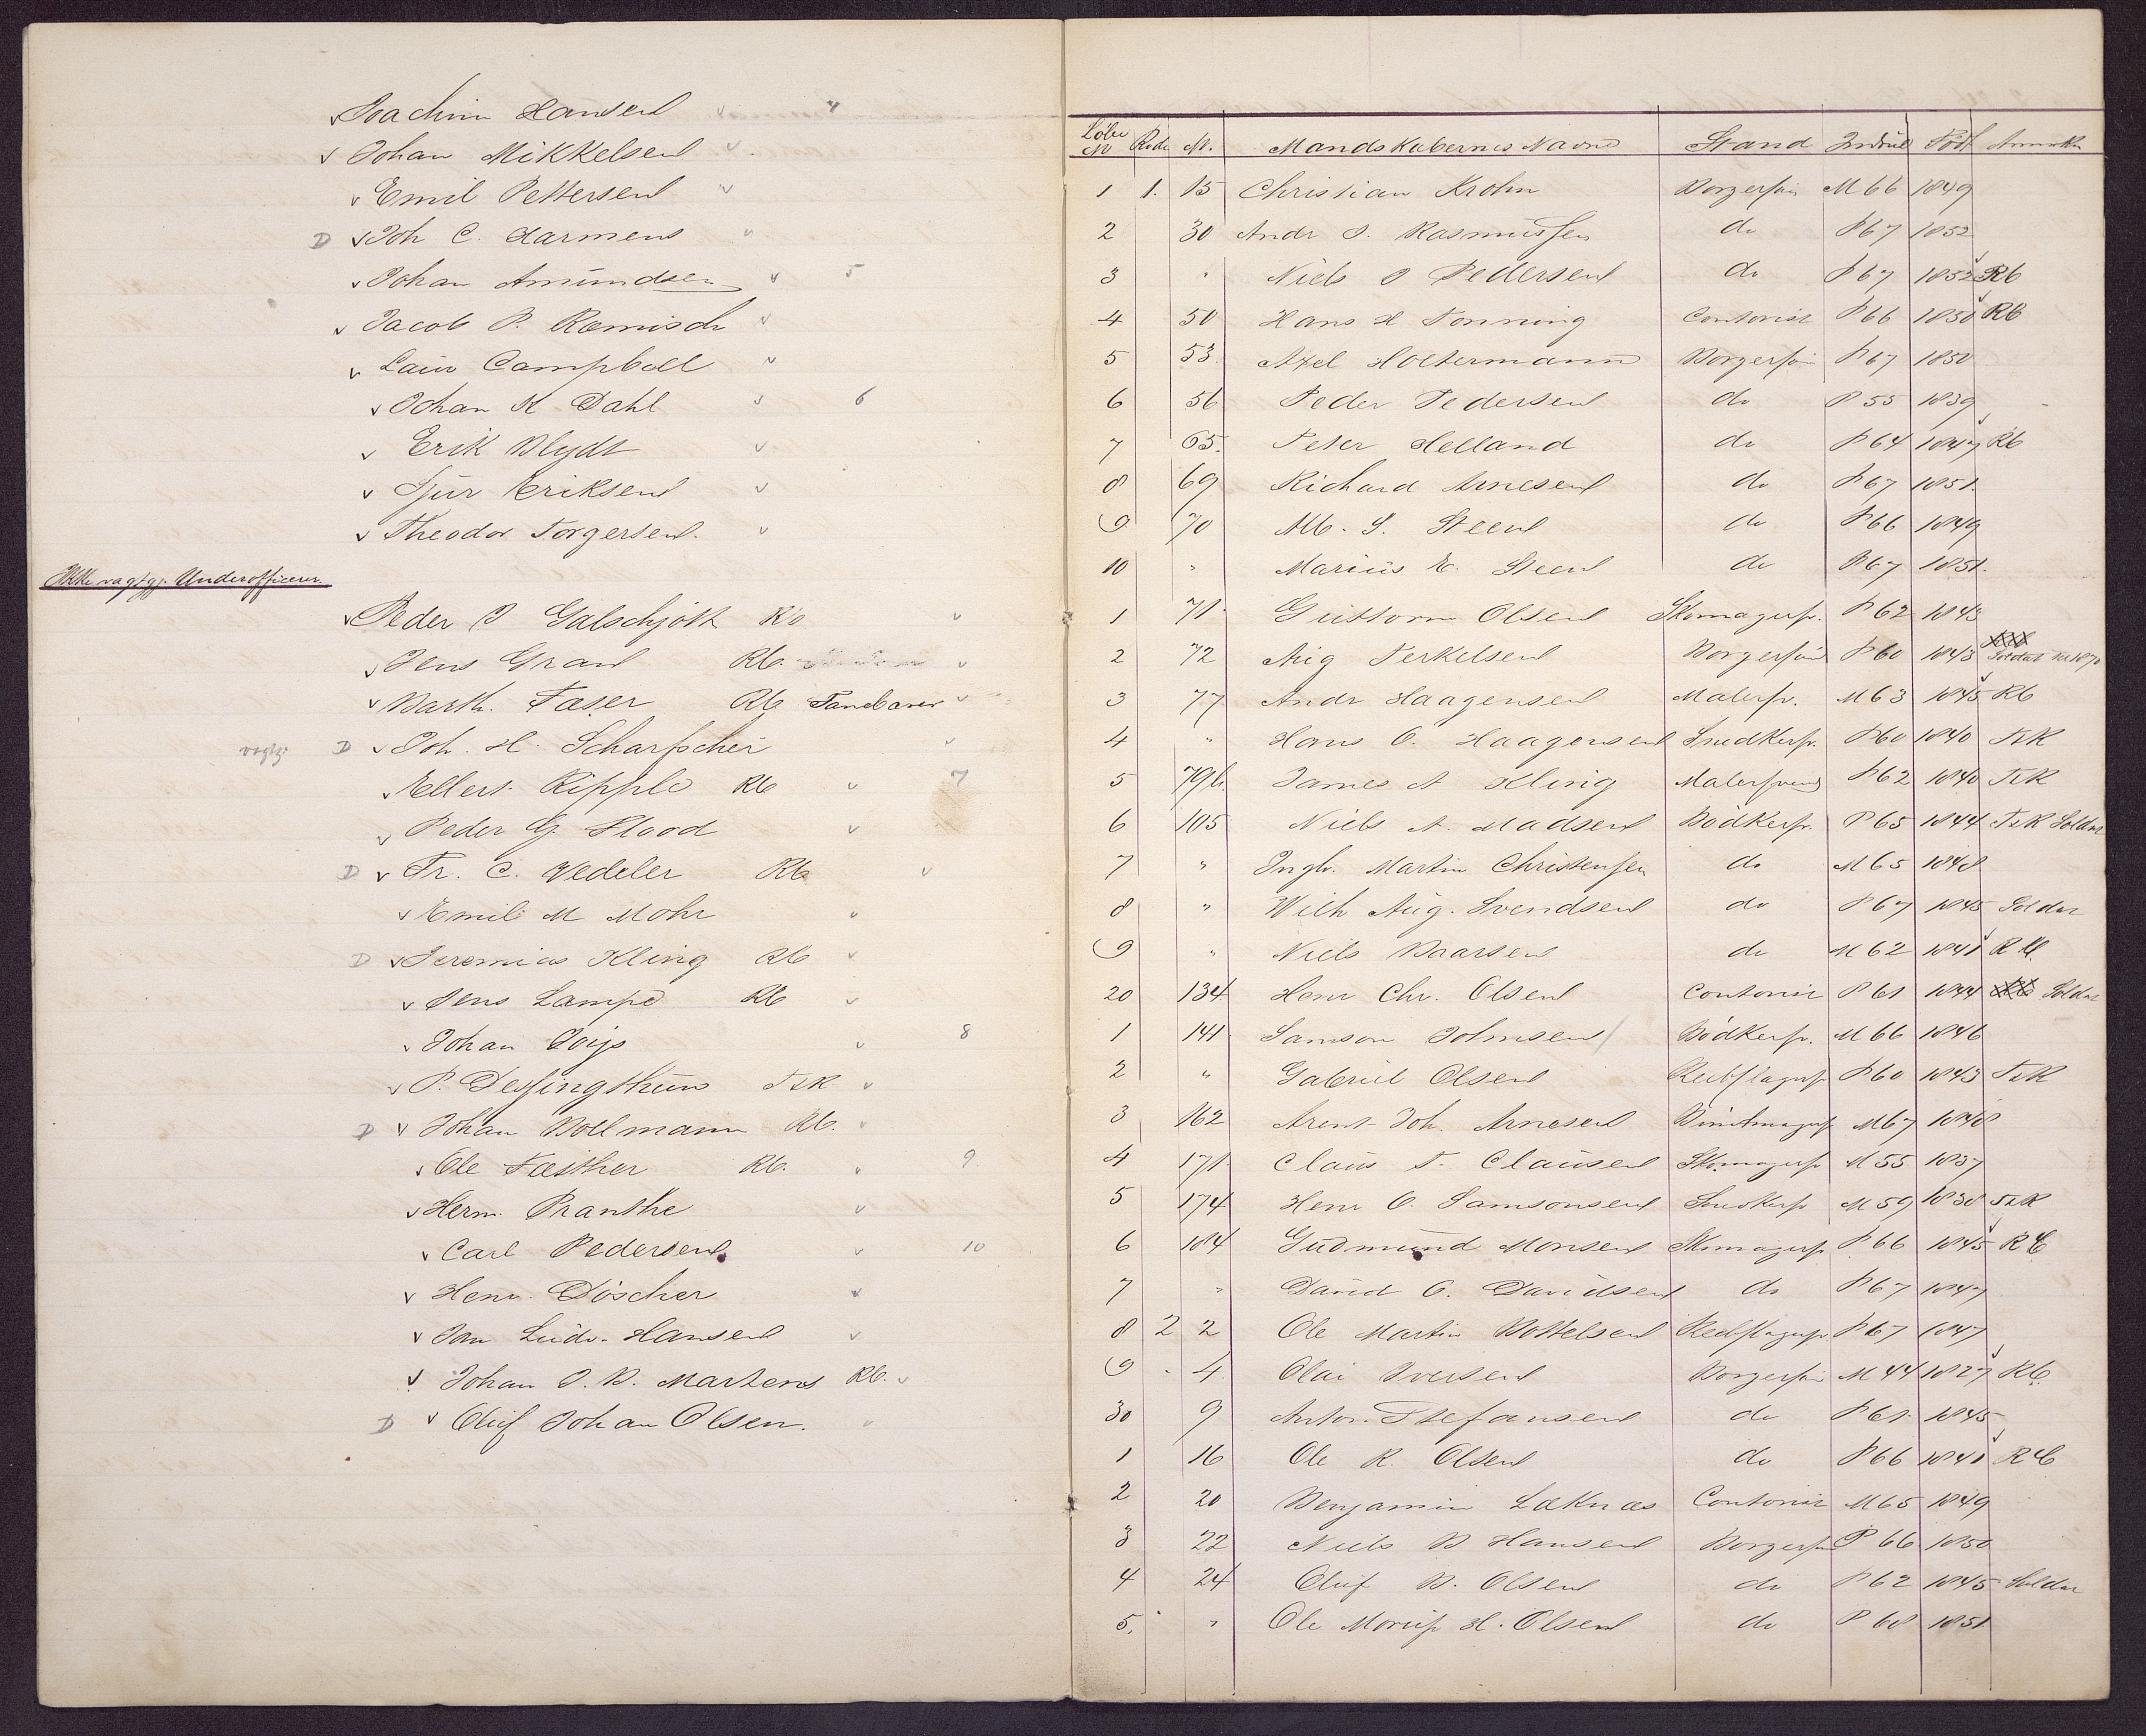 Joachim Hansen " 4
v Johan Mikkelsen v
v Emil Pettersen "
D v Joh C. Harmens "
v Johan Amundsen " 5
v Jacob P. Romisch v
v Lauv Campbell "
v Johan K Dahl v 6
v Erik Blydt v
v Sjur Eriksen v
v Theodor Torgersen. v
Ikke vagtgj. Underofficerer.
v Peder J Galschjött Rb v
v Jens Gran Rb. v
v Barth. Fæser Rb Fanebærer v
vagtgj. D v Joh. H. Scharfscher v
v Ellert Ripple Rb v 7
v Peder G. Flood v
D v Fr. C. Wedeler Rb v
v Emil M Mohr v
D v Jeremias Kling Rb v
v Jens Lampe Rb v
v Johan Foijs v 8
v P. Dessingthun TsK v
D v Johan Bollmann Rb. v
v Ole Fæsther Rb. v 9
v Herm. Pranthe v
v Carl Pedersen v 10
v Henr. Döscher v
v Jan Ludv. Hansen v
v Johan J. B. Martens Rb. v
D v Oluf Johan Olsen. v
Löbe No Rode No. Mandskabernes Navne Stand Indrul Född Anmærkn
1 1. 15 Christian Krohn Borgersön M 66 1849
2 30 Andr J. Rasmussen do P 67 1852
3 " Niels J Pedersen do P 67 1852 Rb
4 50 Hans H Tonning Contorist P 66 1850 Rb
5 53. Axel Holtermann Borgersön P 67 1850
6 56 Peder Pedersen do P 55 1839
7 65. Peter Helland do P 64 1847 Rb
8 69 Richard Arnesen do P 67 1851.
9 70 Alb. S. Steen do P 66 1849
10 " Marius E. Steen do P 67 1851.
1 71. Guttorm Olsen Skomagersv. P 62 1843
2 72 Aug Terkelsen Borgersön P 60 1843 Soldat 1870
3 77 Andr Haagensen Malersv. M 63 1845 Rb
4 " Hans O. Haagensen Snedkersv. P 60 1840 TsK
5 79b. James A Kling Malersvend P 62 1840 TsK
6 105 Niels A. Madsen Bödkersv. P 65 1844 TsK Soldat
7 " Ingbr. Martin Christensen do M 65 1848
8 " Wilh Aug. Svendsen do P 67 1845 Soldat
9 " Niels Baarsen do M 62 1841 Rb.
20 134 Henr Chr. Olsen Contorist P 61 1844 Soldat
1 141 Samson Johnsen Bödkersv. M 66 1846
2 " Gabriel Olsen Rebslagersv P 60 1843 TsK
3 162 Arent Joh. Arnesen Buntmagersv M 67 1848
4 171. Claus T. Clausen Skomagersv M 55 1837
5 174 Henr O. Samsonsen Snedkersv M 59 1838 TsK
6 184 Gudmund Monsen Skomagersv P 66 1845 Rb
7 " David O. Davidsen do P 67 1847
8 2 2 Ole Martin Bottelsen Rebslagersv P 67 1847
9 . 4 Olai Iversen Borgersön M 44 1827 Rb.
30 9 Anton Stefansen do P 61. 1845
1 16 Ole R. Olsen do P 66 1841 Rb
2 20 Benjamin Læknæs Contorist M 65 1849
3 22 Niels B Hansen Borgersön P 66 1850
4 24 Oluf B. Olsen do P 62 1845 Soldat
5. " Ole Morup H. Olsen do P 68 1851